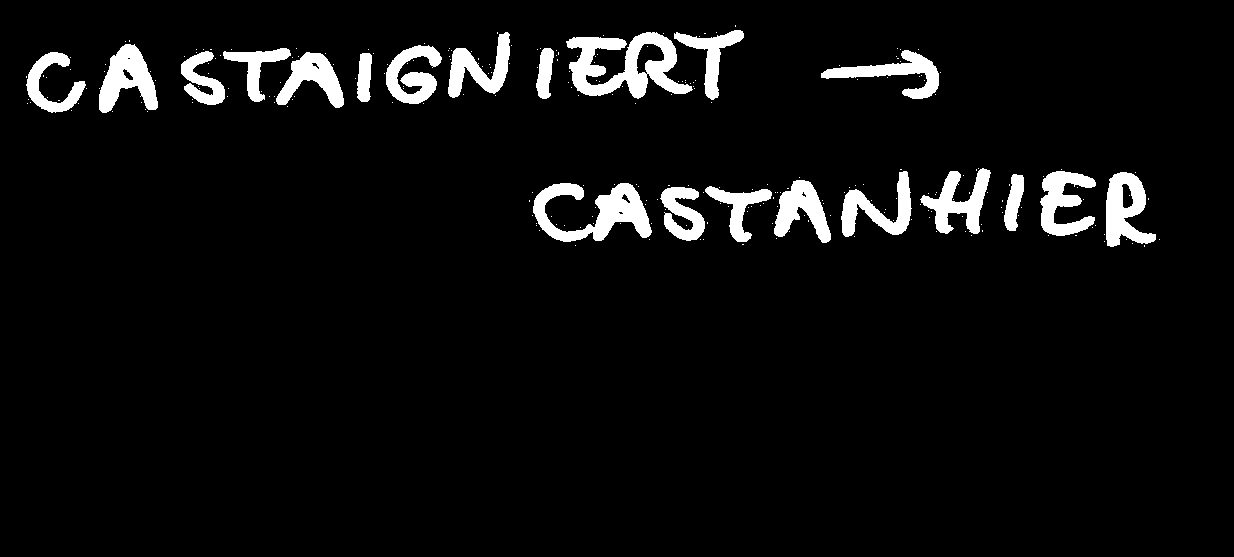 CASTAIGNIERT →
CASTANHIER